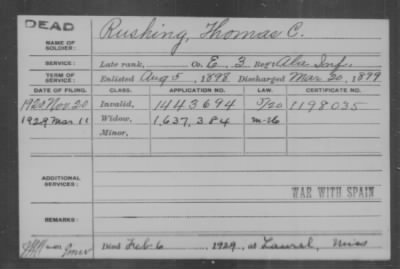 DEAD
NAME OF SOLDIER: Rushing, Thomas C.
SERVICE: Late rank, Co. E. 3. Reg't Ala Inf.
TERM OF SERVICE: Enlisted Aug 5, 1898 Discharged Mar. 20, 1899
DATE OF FILING. CLASS. APPLICATION NO. LAW. CERTIFICATE NO.
Nov 20 Invalid, 1443694 1198035
1929 Mar 11 Widow, 1,637,384 m-16
Minor,
ADDITIONAL SERVICES:
WAR WITH SPAIN
REMARKS:
Died Feb 6 1929, at Laurel, Miss